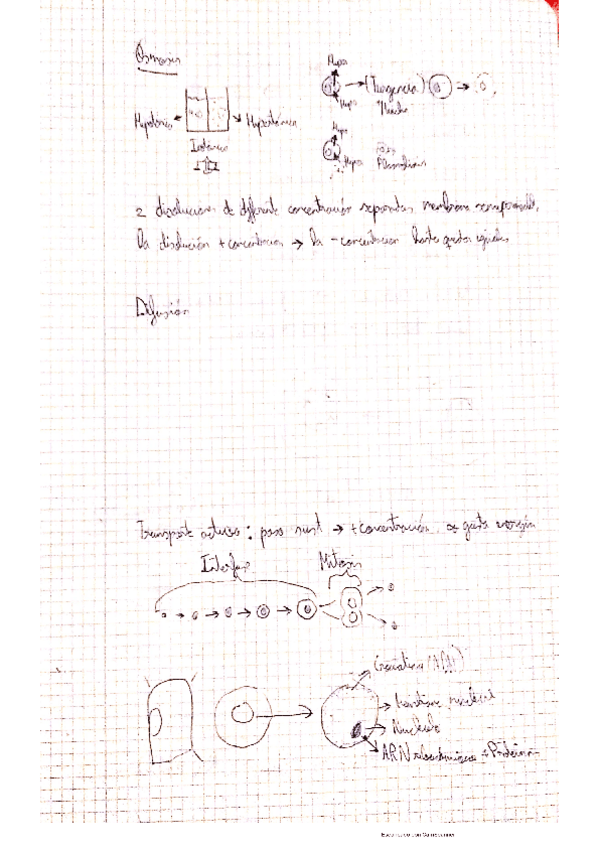 Osmosis
Hipo
→ (Turgencia) →
Hipo Mucho
Hipotónico ← → Hipertónica
Isotónico
Hiper
Plasmolisis
2 disoluciones de diferente concentración separadas membrana semipermeable,
la disolución + concentracion → la - concentracion hasta quedar iguales
Difusión
Transporte activo: paso sust → + concentración. se gasta energía
Interfase Mitosis
Cromatina (ADN)
→ Membrana nuclear
→ Nucleolo
ARN ribosómico + Proteína
Escaneado con CamScanner